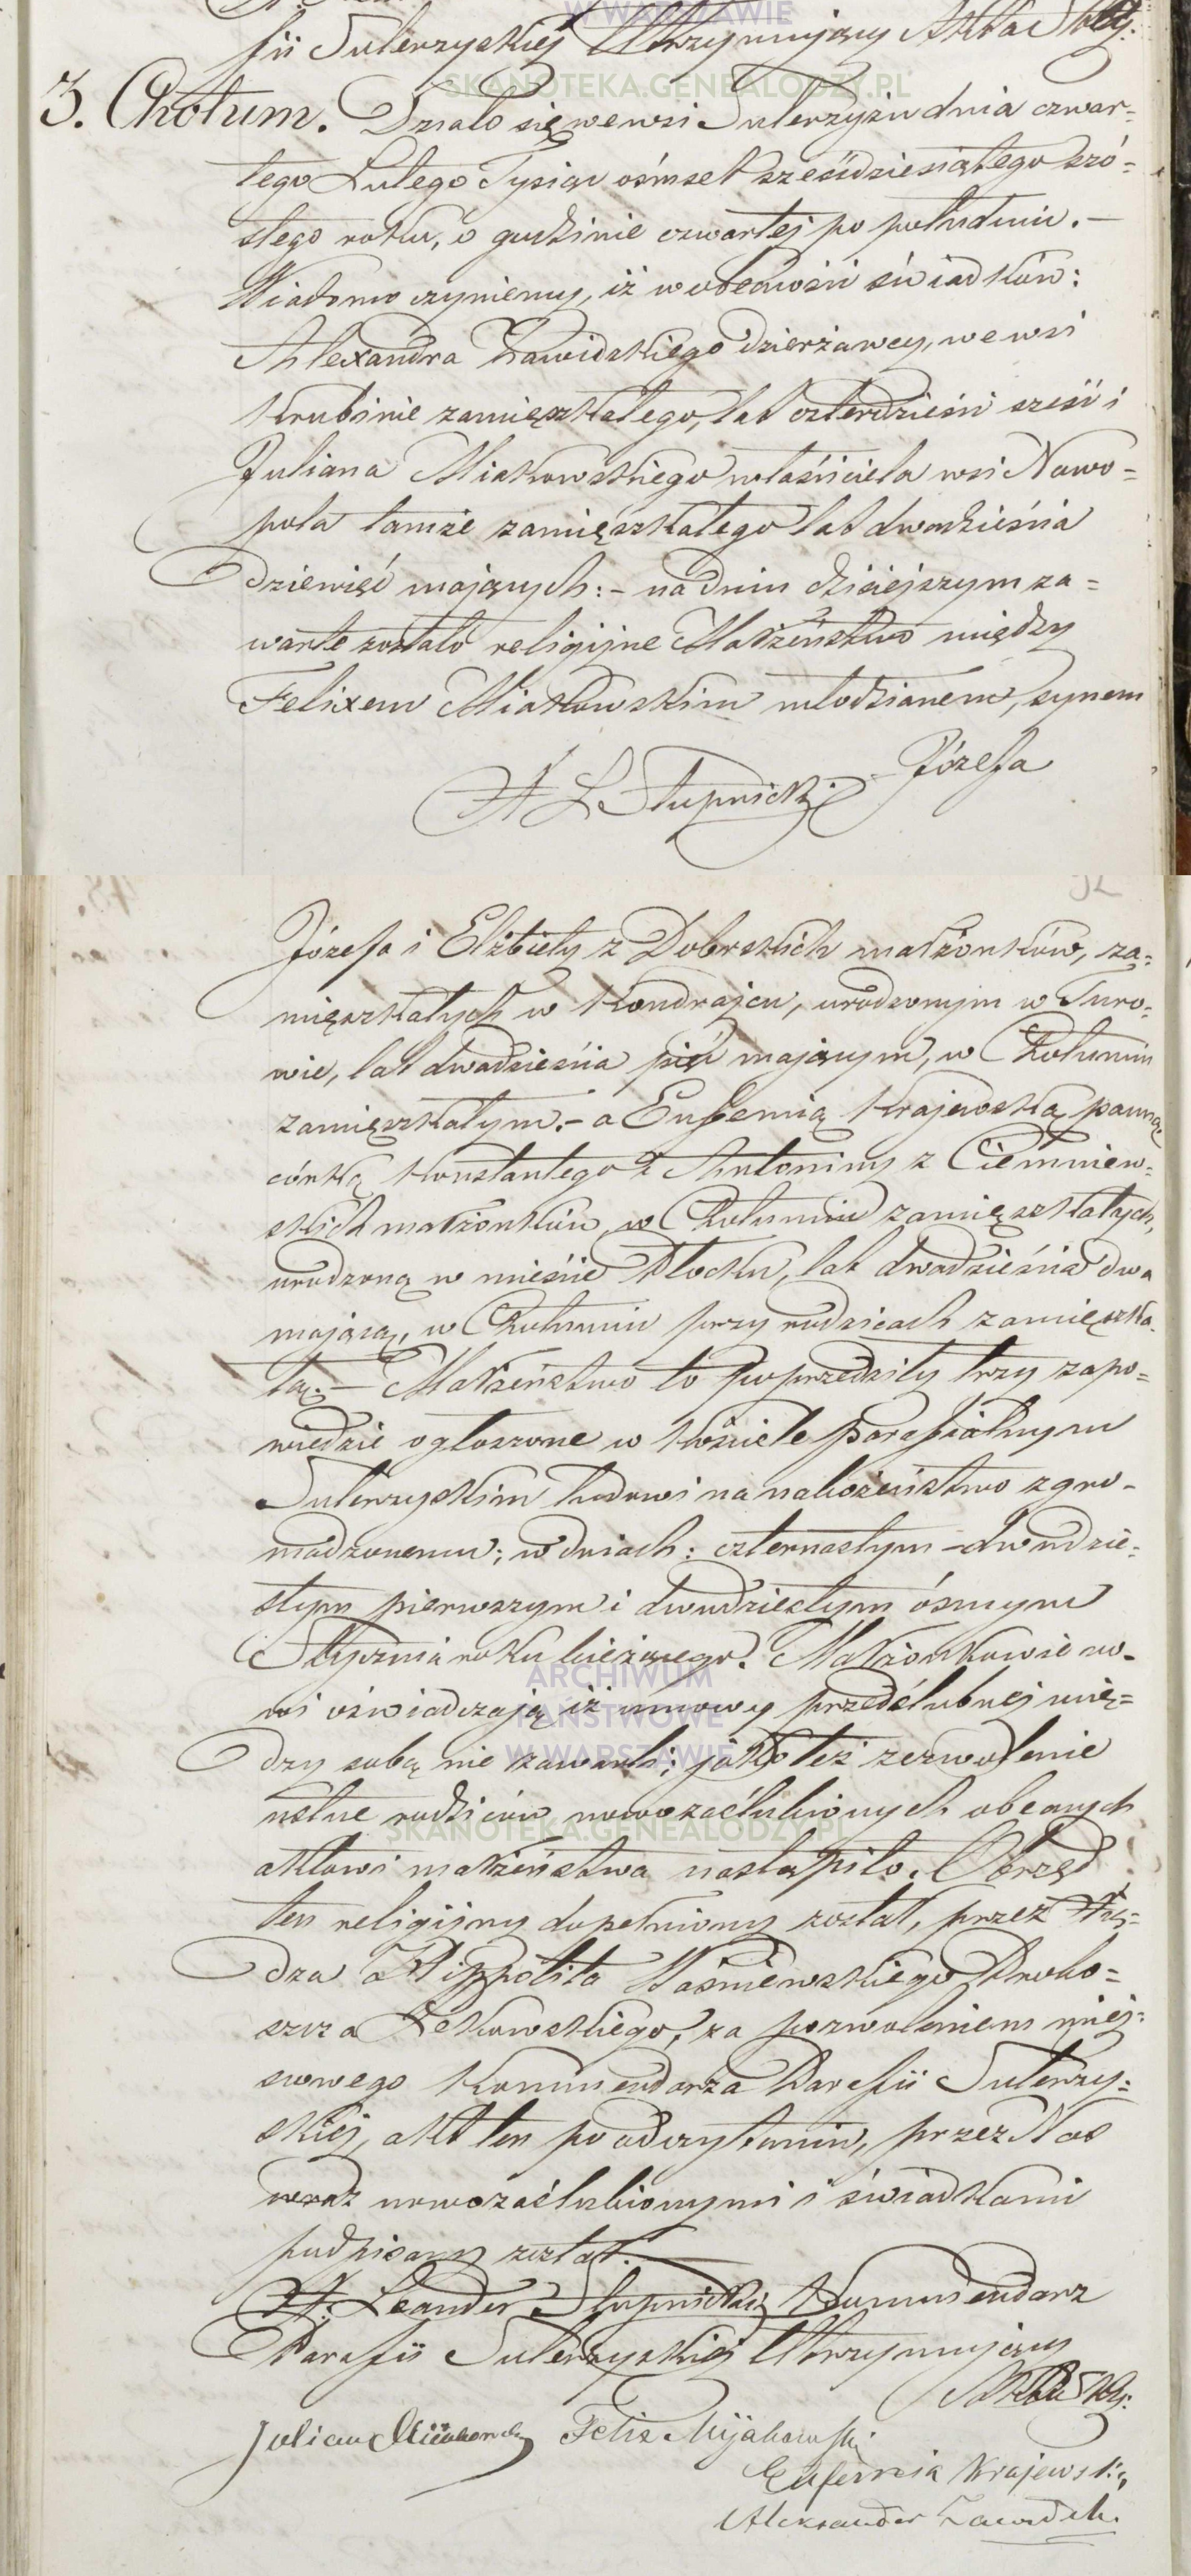 W WARSZAWIE
fii Sulerzyskiej Utrzymujący Akta
SKANOTEKA.GENEALODZY.PL
3. Chotum. Działo się we wsi Sulerzyżu dnia czwar=
tego Lutego Tysiąc ośmset sześćdziesiątego szó=
stego roku, o godzinie czwartej po południu. –
Wiadomo czyniemy, iż w obecności świadków:
Alexandra Zawidzkiego dzierżawcy, we wsi
Krubinie zamięszkałego, lat czterdzieści sześć i
Juliana Miakowskiego właściciela wsi Nowo=
pola tamże zamięszkałego lat dwadzieścia
dziewięć mających: – na dniu dzisiejszym za=
warte zostało religijne Małżeństwo między
Felixem Miakowskim młodzianem, synem
Józefa
X L Słupnicki
Józefa i Elżbiety z Dobrskich małżonków, za=
mięszkałych w Kondrajcu, urodzonym w Turo=
wie, lat dwadzieścia pięć mającym, w Chotumiu
zamięszkałym. – a Eufemią Krajewską panną
córką Konstantego i Antoniny z Ciemniew=
skich małżonków w Chotumiu zamięszkałych,
urodzoną w mieście Płocku, lat dwadzieścia dwa
mającą, w Chotumiu przy rodzicach zamięszka=
łą. – Małżeństwo to poprzedziły trzy zapo=
wiedzie ogłoszone w Kościele parafialnym
Sulerzyskim ludowi na nabożeństwo zgro=
madzonemu; w dniach: czternastym – dwudzie=
stym pierwszym i dwudziestym ósmym
Stycznia roku bieżącego. Małżonkowie no=
wi oświadczają iż umowy przedślubnej mię=
ARCHIWUM
PAŃSTWOWE
W WARSZAWIE
dzy sobą nie zawarli; jako też zezwolenie
ustne rodziców nowozaślubionych obecnych
SKANOTEKA.GENEALODZY.PL
aktowi małżeństwa nastąpiło. Obrzęd
ten religijny dopełniony został, przez Xię=
dza Hippolita Waśniewskiego Probo=
szcza, za pozwoleniem miej=
scowego Kommendarza Parafii Sulerzy=
skiej, akt ten po odczytaniu, przez Nas
wraz nowozaślubionymi i świadkami
podpisany został. –
X. Leander Słupnicki Kommendarz
Parafii Sulerzyskiej Utrzymujący
Akta
Julian Miiakowski Felix Mijakowski
Eufemia Krajewska
Aleksander Zawidzki